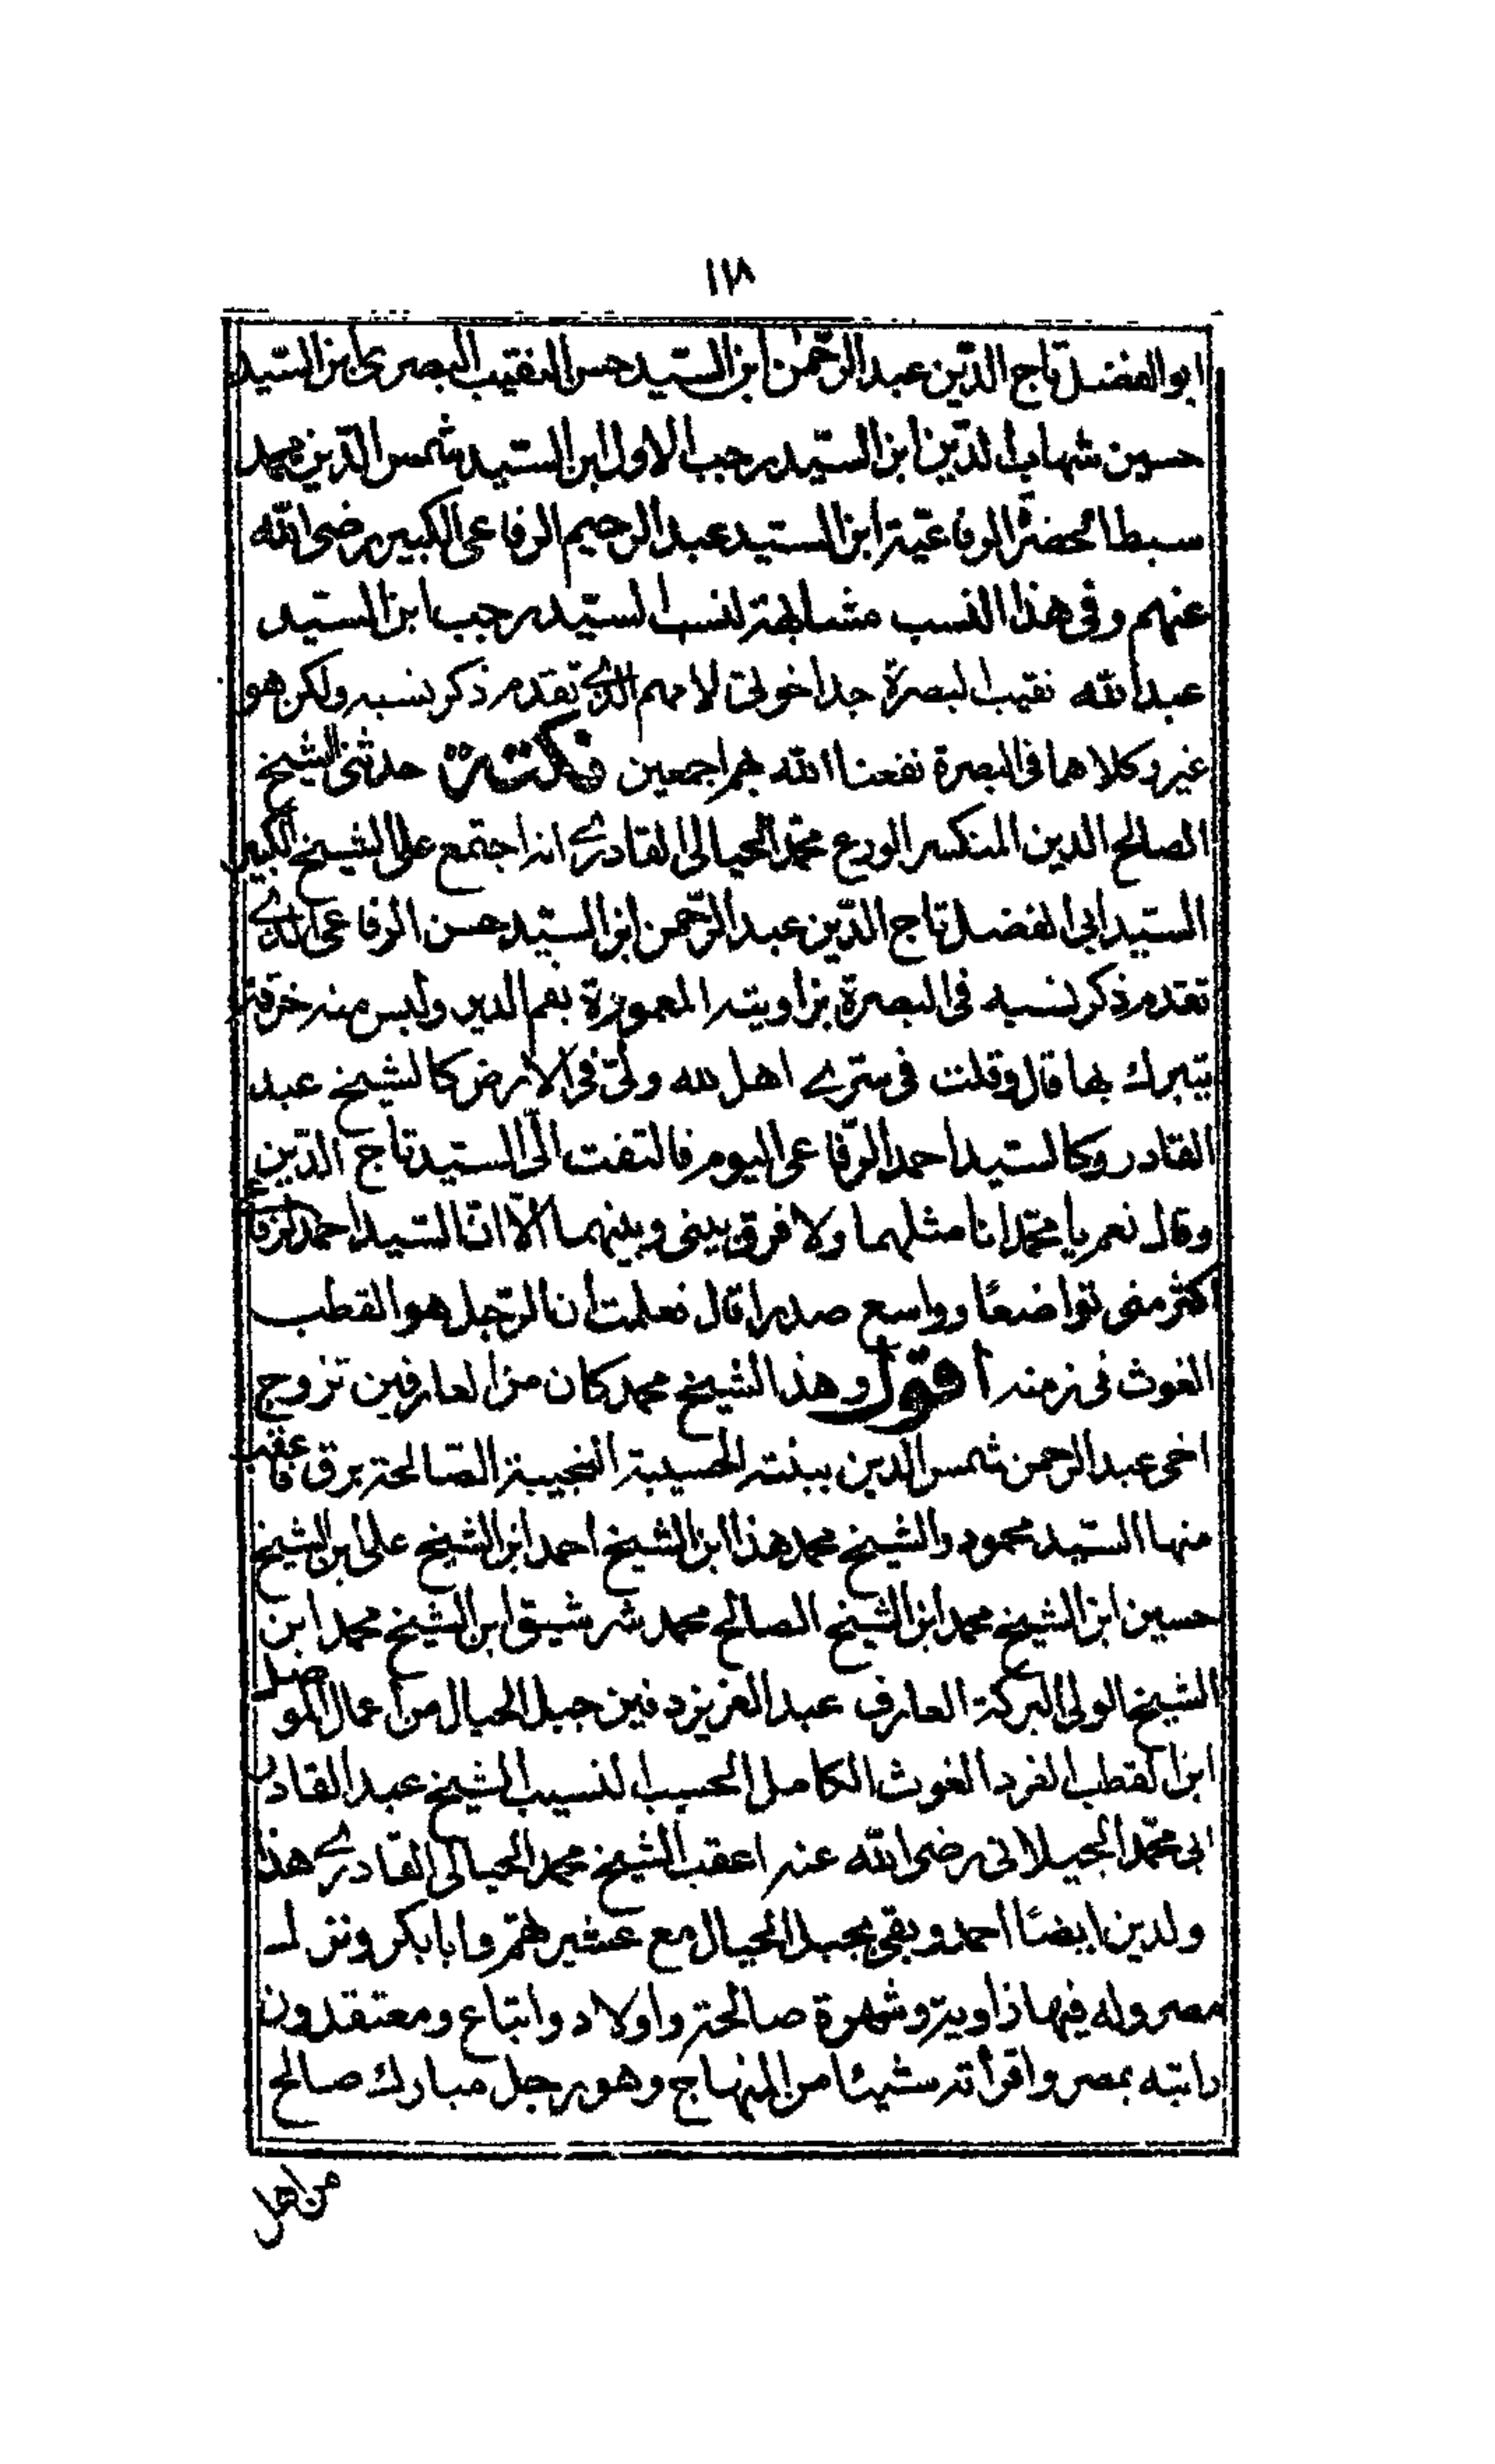 ١١٨
ابو الفضل تاج الدّين عبد الرّحمٰن ابن السّيد حسن النقيب البصرى ابن السّيد
حسين شهاب الدّين ابن السّيد رجب الاول ابن السّيد شمس الدّين محمد
سبط الحضرة الرفاعيّة ابن السّيد عبد الرحيم الرفاعى الكبير رضى الله
عنهم وفى هذا النسب مشابهة لنسب السّيد رجب ابن السّيد
عبد الله نقيب البصرة جد اخوتى لامهم الذى تقدم ذكر نسبه ولكن هو
غير وكلاهما فى البصرة نفعنا الله بهم اجمعين نكتة حدثنى الشيخ
الصالح الدين المنكسر الورع محمّد الحيالى القادرى انه اجتمع على الشيخ الكبير
السّيد ابى الفضل تاج الدّين عبد الرّحمن ابن السّيد حسن الرفاعى الذى
تقدم ذكر نسبه فى البصرة بزاويته المعمورة بفم الدير ولبس منه خرقة
يتبرك بها قال وقلت فى سرّى اهل لله ولىّ فى الارض كالشيخ عبد
القادر وكالسّيد احمد الرّفاعى اليوم فالتفت الىّ السّيد تاج الدّين
وقال نعم يا محمّد انا مثلهما ولا فرق بينى وبينهما الّا انّ السّيد احمد الرفاعى
اكثر منى تواضعًا وواسع صدرا قال فعلمت أن الرّجل هو القطب
الغوث فى زمنه اقول وهذا الشيخ محمد كان من العارفين تزوج
اخى عبد الرحمن شمس الدين ببنته الحسيبة النجيبة الصّالحة برق فاعقب
منها السّيد محمود والشيخ محمد هذا ابن الشيخ احمد ابن الشيخ على ابن الشيخ
حسين ابن الشيخ محمد ابن الشيخ الصالح محمد شرشيق ابن الشيخ محمد ابن
الشيخ الولى البركة العارف عبد العزيز دفين جبل الحيال من أعمال الموصل
ابن القطب الفرد الغوث الكامل الحسيب النسيب الشيخ عبد القادر
ابى محمّد الجيلانى رضى الله عنه اعقب الشيخ محمد الحيالى القادرى هذا
ولدين ايضًا احمد وبقى بجبل الحيال مع عشيرتهم وابا بكر ونزل
مصر وله فيها زاوية وشهرة صالحة واولاد واتباع ومعتقدون
رايته بمصر واقرأته شيئا من المنهاج وهو رجل مبارك صالح
من اهل